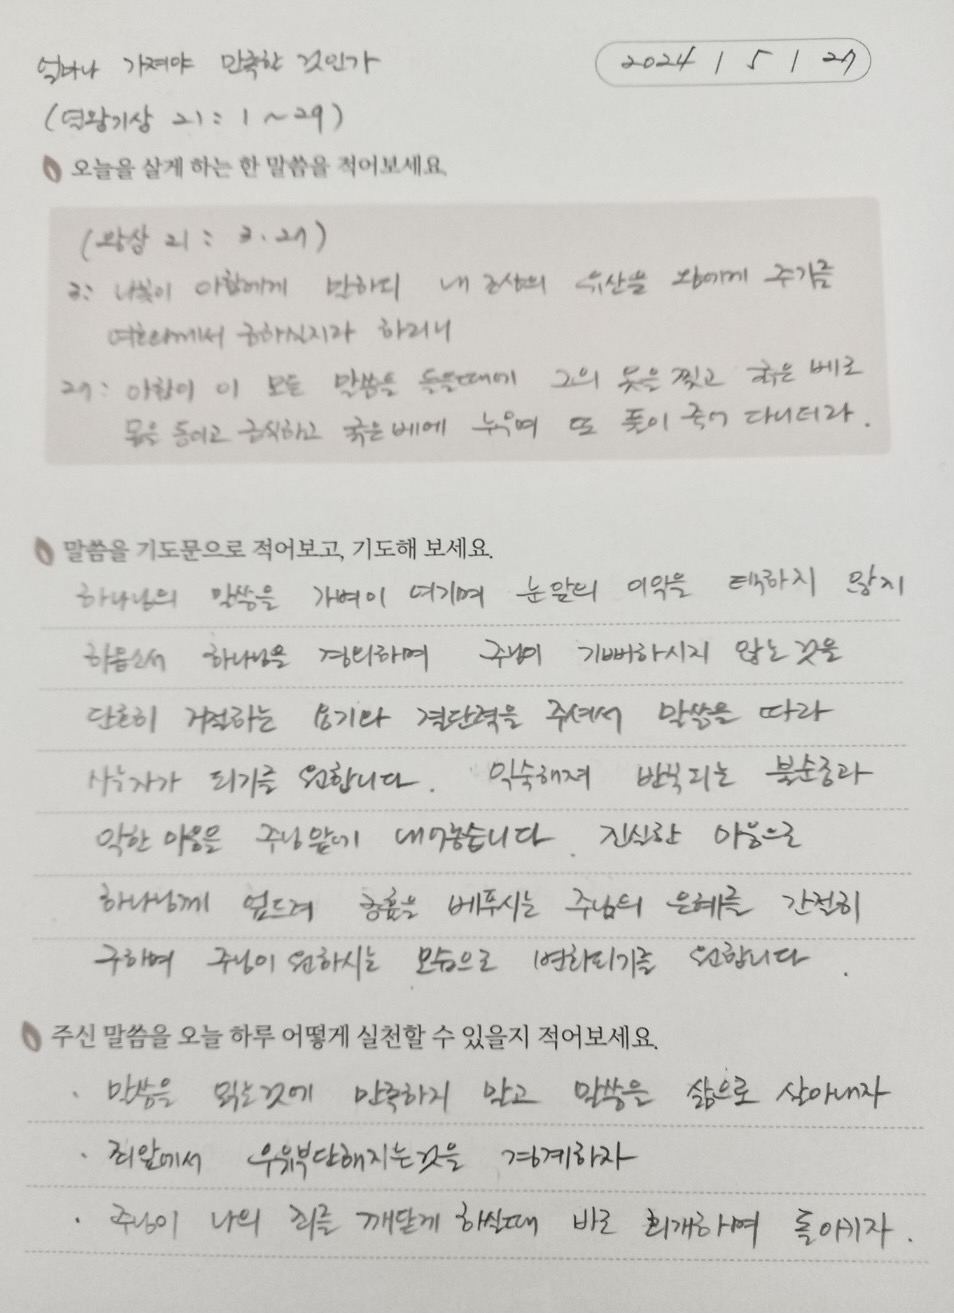 얼마나 가져야 만족한 것인가
2024 / 5 / 27
(열왕기상 21: 1 ~ 29)
오늘을 살게 하는 한 말씀을 적어보세요.
(왕상 21: 3. 27)
3: 나봇이 아합에게 말하되 내 조상의 유산을 왕에게 주기를
여호와께서 금하실지라 하리니
27: 아합이 이 모든 말씀을 들을때에 그의 옷을 찢고 굵은 베로
몸을 동이고 금식하고 굵은 베에 누우며 또 풀이 죽어 다니더라.
말씀을 기도문으로 적어보고, 기도해 보세요.
하나님의 말씀을 가벼이 여기며 눈앞의 이익을 택하지 말지
하옵소서 하나님을 경외하며 주님이 기뻐하시지 않는 것을
단호히 거절하는 용기와 결단력을 주셔서 말씀을 따라
사는자가 되기를 원합니다. 익숙해져 반복되는 불순종과
악한 마음을 주님앞에 내어놓습니다. 진실한 마음으로
하나님께 엎드려 긍휼을 베푸시는 주님의 은혜를 간절히
구하며 주님이 원하시는 모습으로 변화되기를 원합니다.
주신 말씀을 오늘 하루 어떻게 실천할 수 있을지 적어보세요.
· 말씀을 읽는것에 만족하지 말고 말씀을 삶으로 살아내자
· 죄앞에서 우유부단해지는것을 경계하자
· 주님이 나의 죄를 깨닫게 하실때 바로 회개하며 돌이키자.